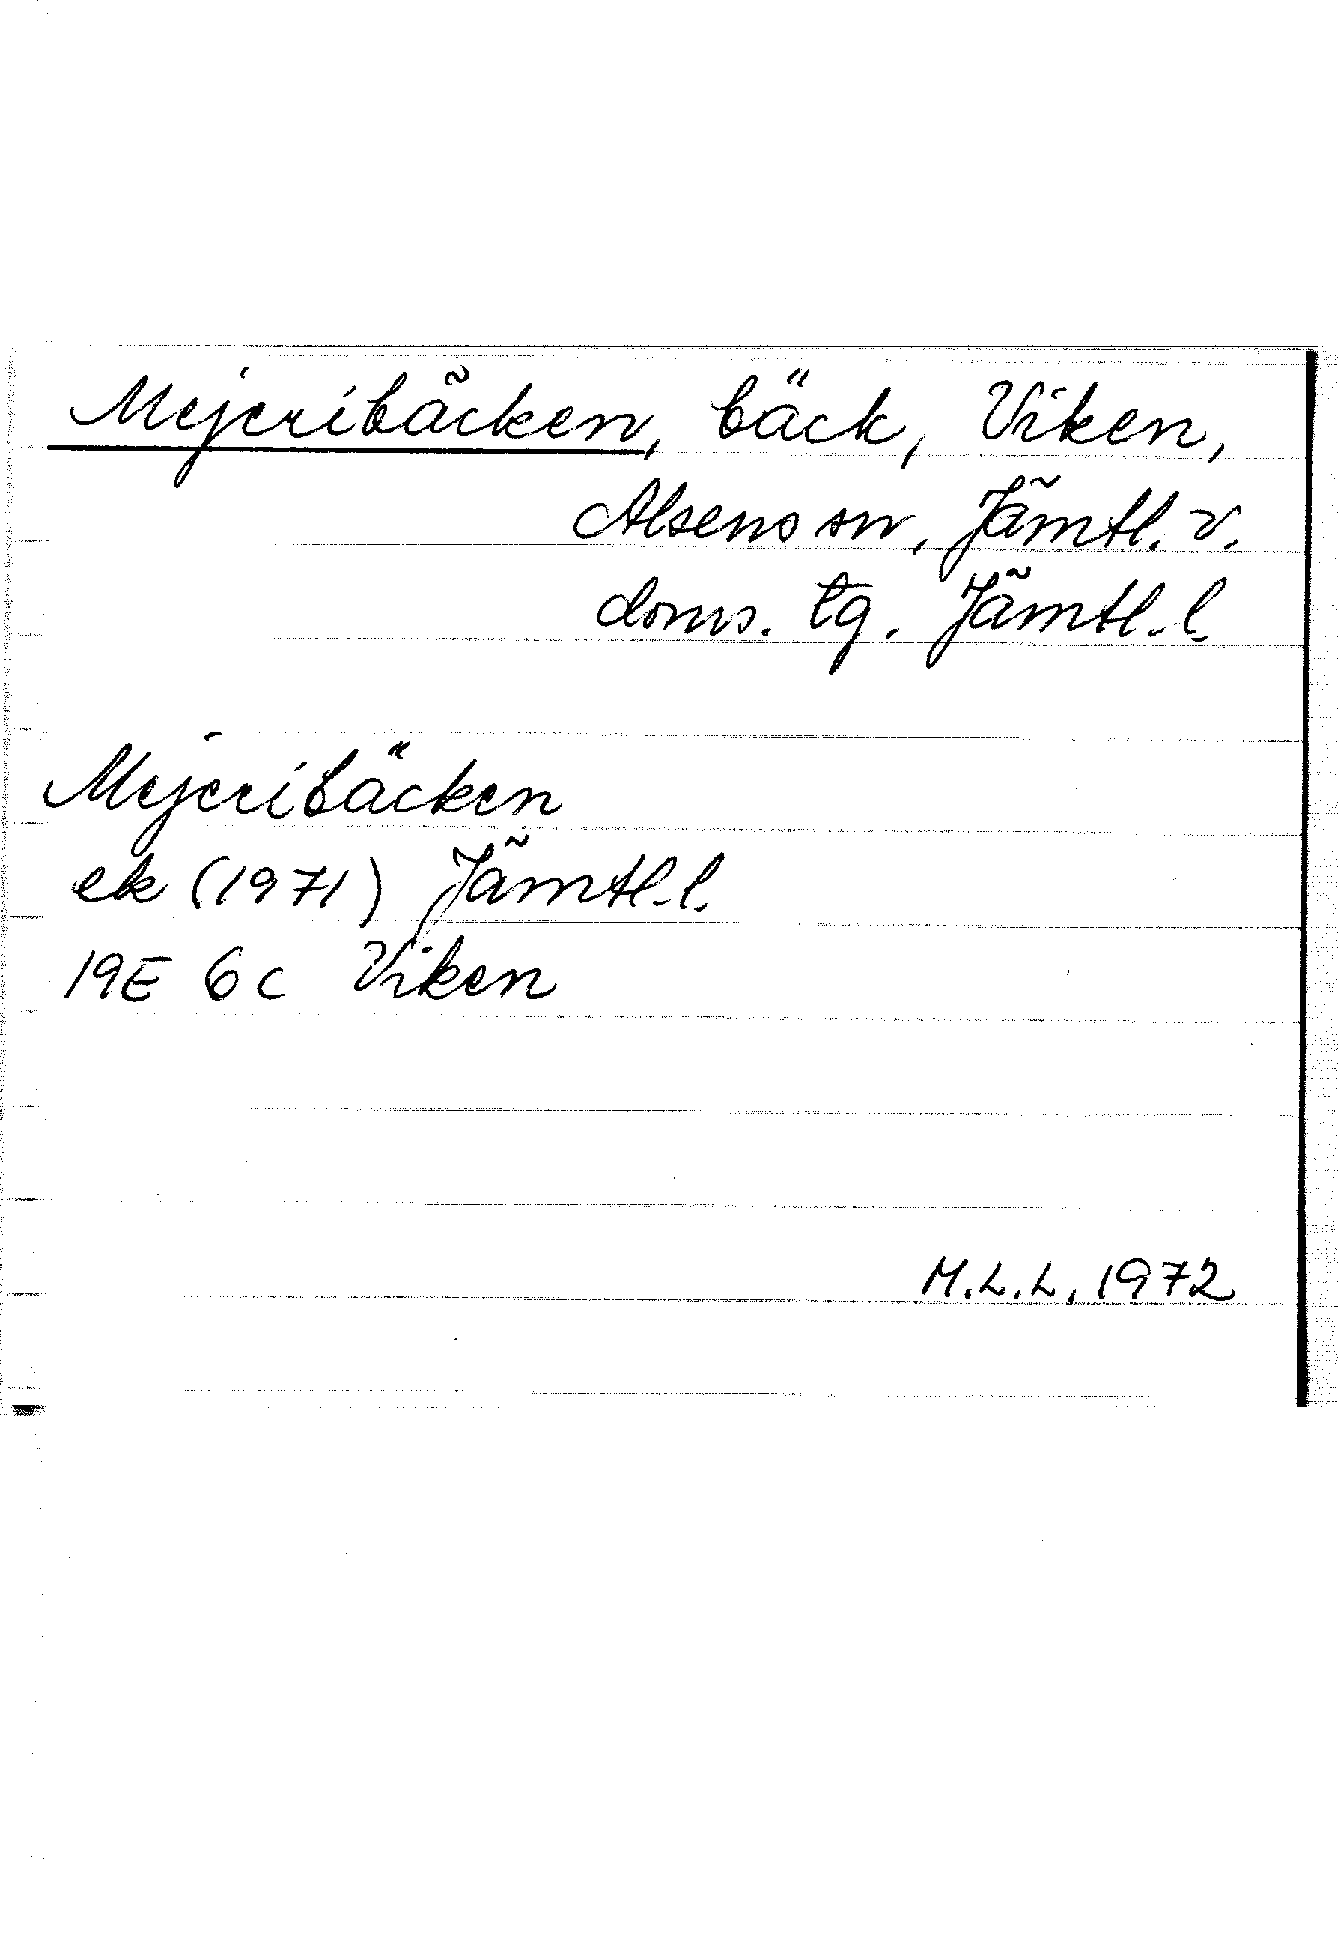 Mejeribäcken, bäck, Viken,
Alsens sn, Jämtl. v.
doms. tg. Jämtl. l.
Mejeribäcken
ek (1971) Jämtl. l.
19E 6c Viken
M.L.L. 1972